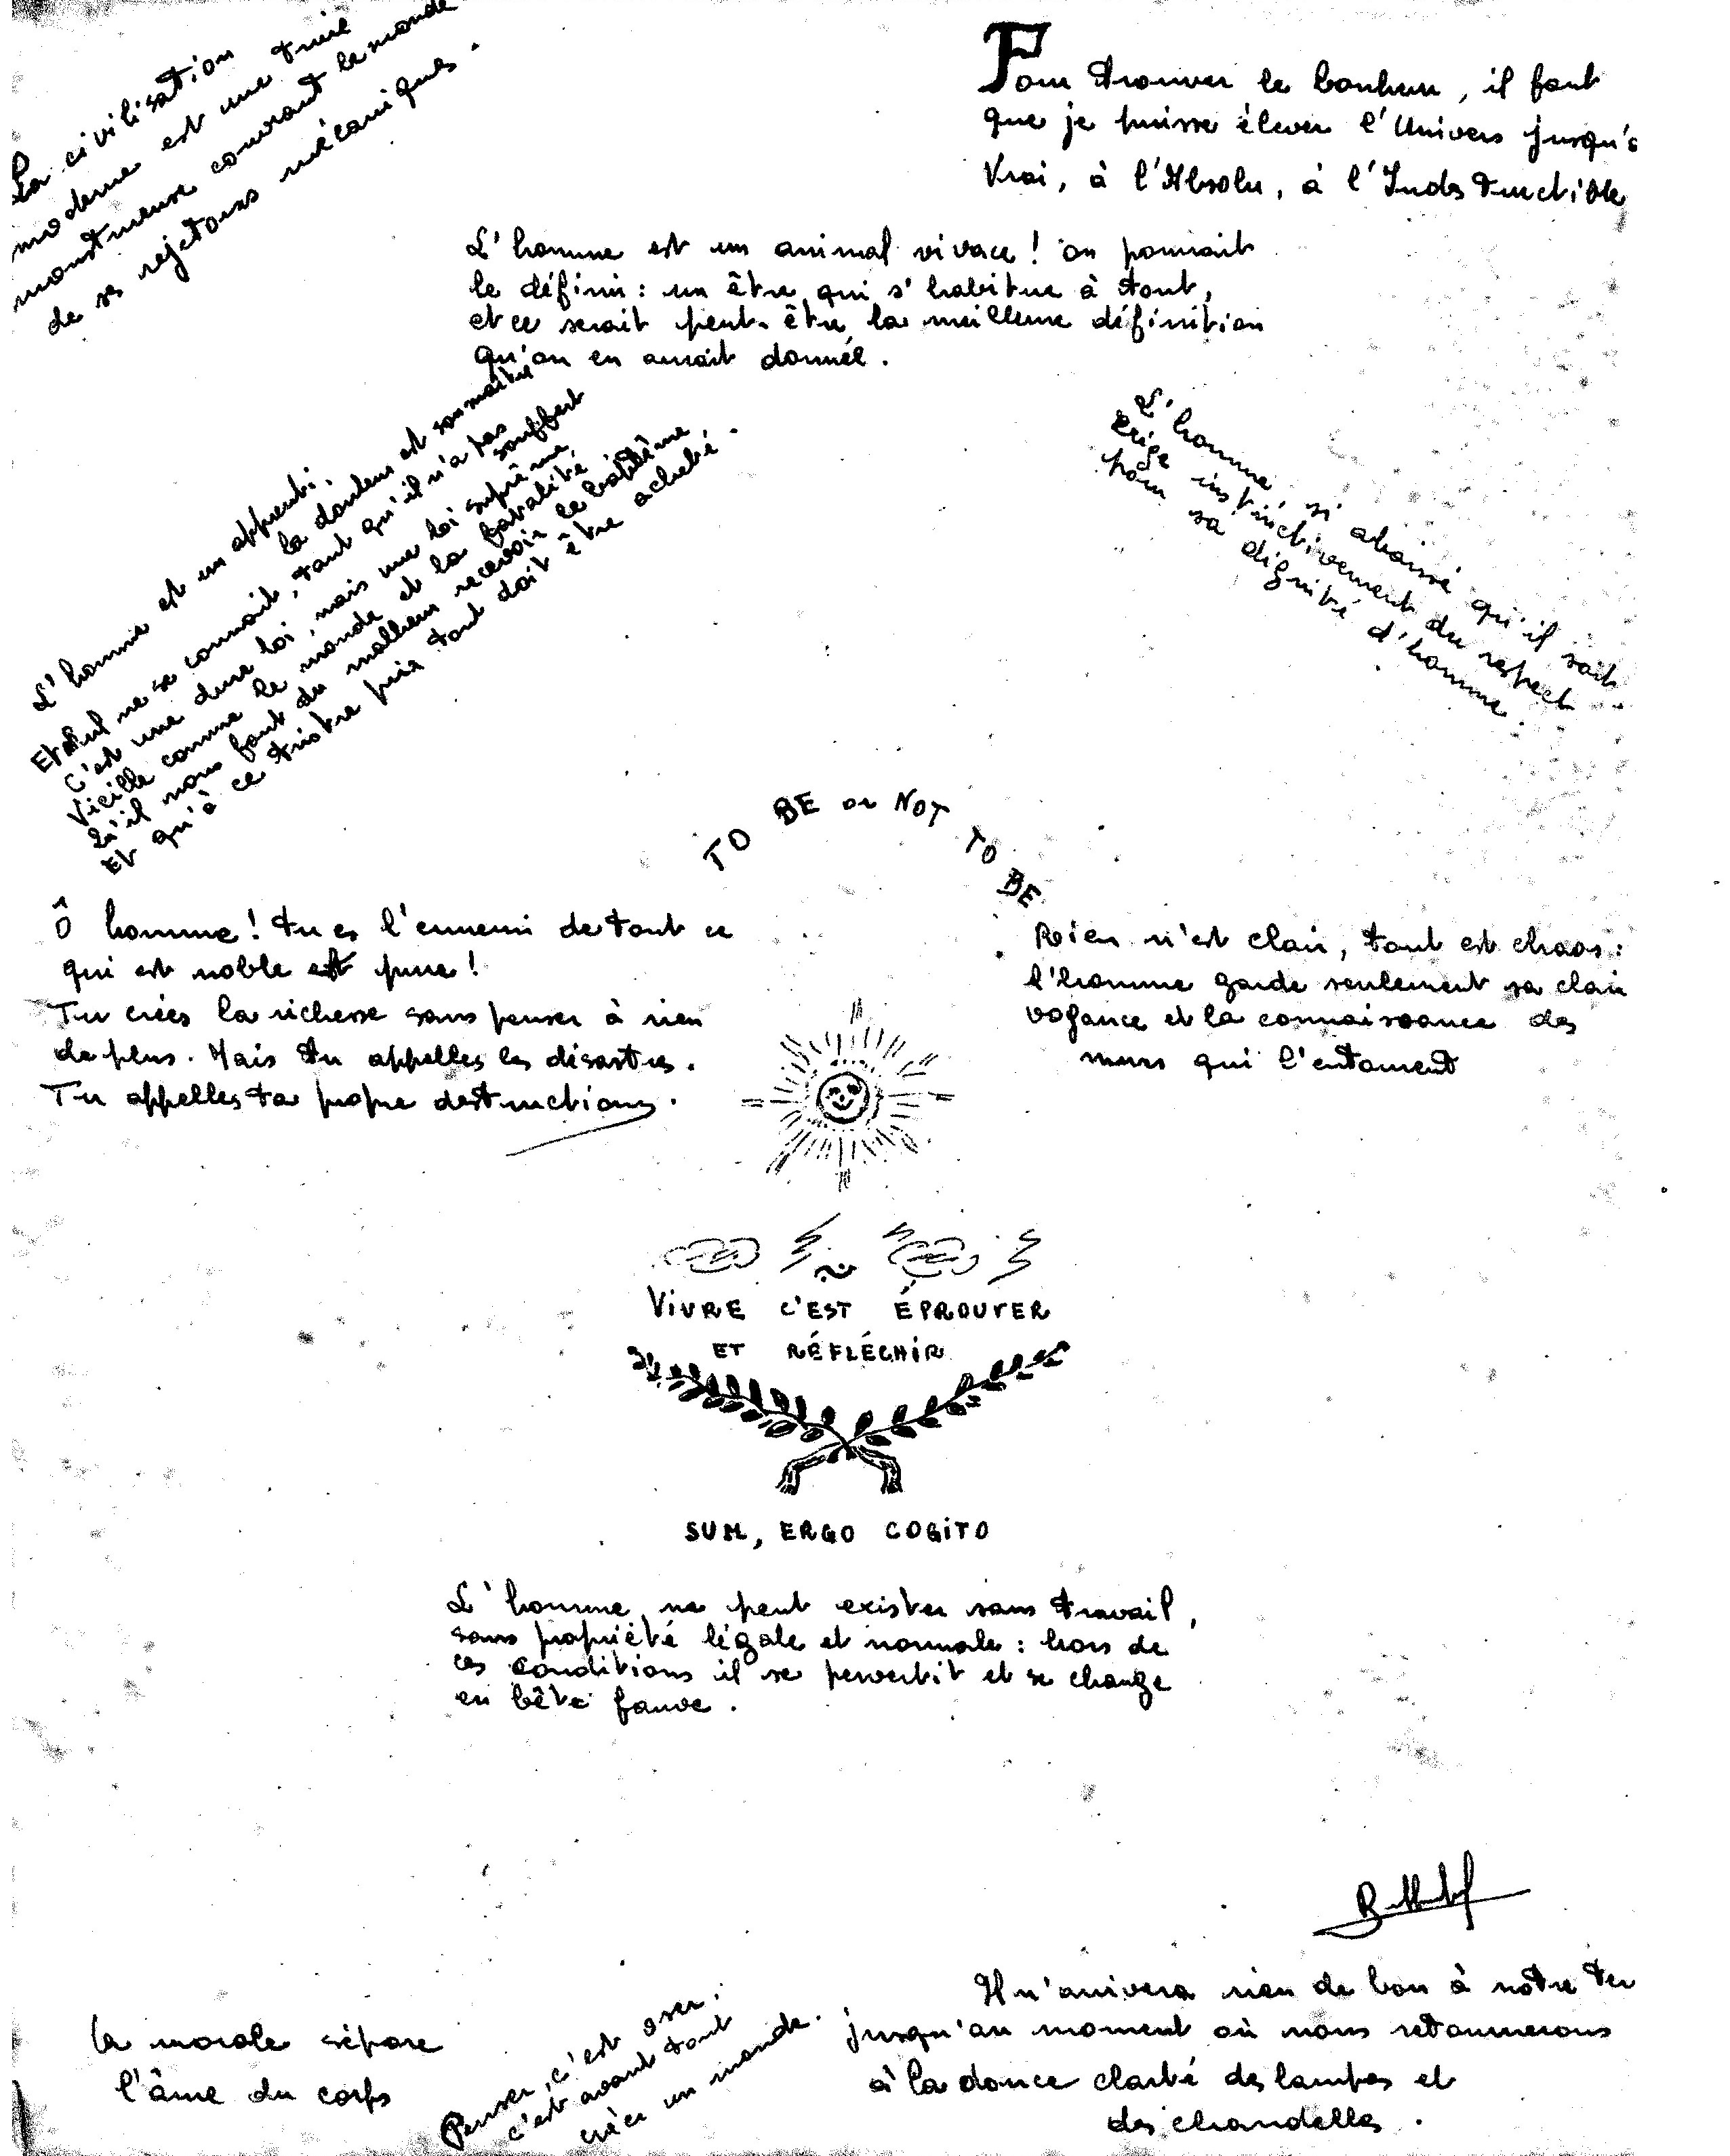 La civilisation
moderne est une truie
monstrueuse couvrant le monde
de ses rejetons mécaniques.
Pour trouver le bonheur, il faut
que je puisse élever l'Univers jusqu'a
Vrai, à l'Absolu, à l'Indestructible
L'homme est un animal vivace ! on pourrait
le définir : un être qui s'habitue à tout,
et ce serait peut-être la meilleure définition
qu'on en aurait donnée.
L'homme est un apprenti,
la douleur est son maître
Et nul ne se connait, tant qu'il n'a pas
souffert
C'est une dure loi, mais une loi suprême
Vieille comme le monde et la fatalité
Qu'il nous faut du malheur recevoir le baptême
Et qu'à ce triste prix tout doit être acheté.
L'homme, si abaissé qu'il soit
Exige instinctivement du respect
pour sa dignité d'homme.
TO BE or NOT TO BE
Ô homme ! tu es l'ennemi de tout ce
qui est noble et pure !
Tu crées la richesse sans penser à rien
de plus. Mais tu appelles les désastres.
Tu appelles ta propre destructions.
Rien n'est clair, tout est chaos :
l'homme garde seulement sa clair
voyance et la connaissance des
murs qui l'entourent
VIVRE C'EST ÉPROUVER
ET RÉFLÉCHIR
SUM, ERGO COGITO
L'homme ne peut exister sans travail,
sans propriété légale et normale : hors de
ces conditions il se pervertit et se change
en bête fauve.
La morale sépare
l'âme du corps
Penser, c'est oser,
c'est avant tout
créer un monde.
Il n'arrivera rien de bon à notre ter
jusqu'au moment où nous retournerons
à la douce clarté des lampes et
des chandelles.